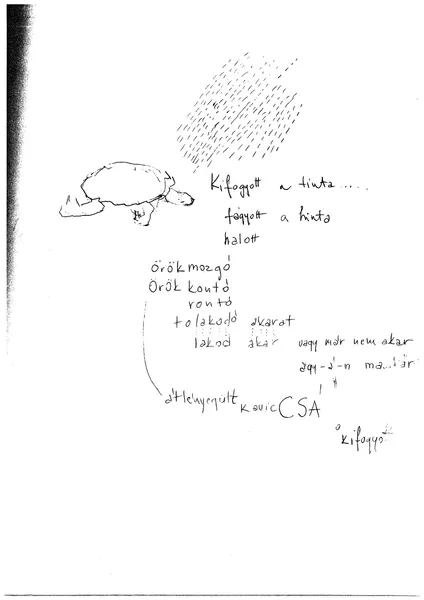 Kifogyott a tinta.....
fagyott a hinta
halott
örökmozgó
örök kontó
rontó
tolakodó akarat
lakod akar vagy már nem akar
agy-á-n ma...
átlényegült kavicCSÁ
kifogyott